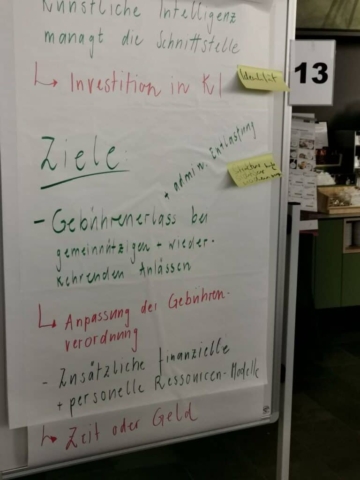 Künstliche Intelligenz
managt die Schnittstelle
↳ Investition in KI
13
Ziele:
+ admin. Entlastung
- Gebührenerlass bei
gemeinnützigen + wieder-
kehrenden Anlässen
↳ Anpassung der Gebühren-
verordnung
- Zusätzliche finanzielle
+ personelle Ressourcen-Modelle
↳ Zeit oder Geld